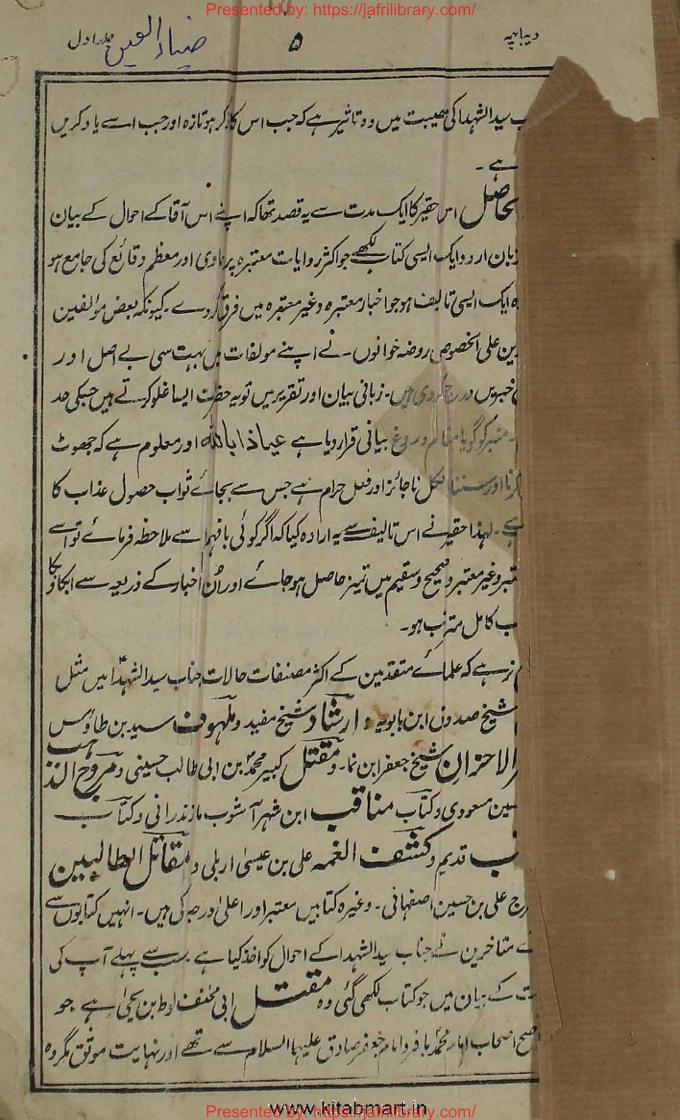 Presented by: https://jafrilibrary.com/
دیباچہ
۵
ضیاء العین جلد اول
سید الشہدا کی مصیبت میں وہ تاثیر ہے کہ جب اس کا ذکر ہو تازہ اور جب اسے یاد کریں
ہے ۔
اس حقیر کا ایک مدت سے یہ قصد تھا کہ اپنے اس آقا کے احوال کے بیان
زبان اردو ایک ایسی کتاب لکھے جو اکثر روایات معتبرہ پر حاوی اور معظم وقائع کی جامع ہو
ایک ایسی تالیف ہو جو اخبار معتبرہ و غیر معتبرہ میں فرق کر دے ۔ کیونکہ بعض مؤلفین
علی الخصوص روضہ خوانوں ۔ نے اپنے مولفات میں بہت سی بے اصل اور
خبریں درج کر دی ہیں ۔ زبانی بیان اور تقریر میں تو یہ حضرت ایسا غلو کرتے ہیں جسکی حد
منبر کو گویا مقام دروغ بیانی قرار دیا ہے عیاذا باللہ اور معلوم ہے کہ جھوٹ
اور سننا بالکل ناجائز اور فعل حرام ہے جس سے بجائے ثواب حصول عذاب کا
ہے ۔ لہذا حقیر نے اس تالیف سے یہ ارادہ کیا کہ اگر کوئی بافہم اسے ملاحظہ فرمائے تو اسے
و غیر معتبر و صحیح و سقیم میں تمیز حاصل ہو جائے اور ان اخبار کے ذریعہ سے ابکا و بکا
کامل مترتب ہو ۔
ہے کہ علمائے متقدمین کے اکثر مصنفات حالات جناب سید الشہدا میں مثل
شیخ صدوق ابن بابویہ و ارشاد شیخ مفید و ملہوف سید بن طاؤس
الاحزان شیخ جعفر ابن نما ۔ و مقتل کبیر محمد بن ابی طالب حسینی و مروج الذہب
مسعودی و کتاب مناقب ابن شہر آشوب مازندرانی و کتاب
قدیم و کشف الغمہ علی بن عیسیٰ اربلی و مقاتل الطالبیین
علی بن حسین اصفہانی ۔ وغیرہ کتابیں معتبر اور اعلیٰ درجہ کی ہیں ۔ انہیں کتابوں سے
متاخرین نے جناب سید الشہدا کے احوال کو اخذ کیا ہے سب سے پہلے آپ کی
کے بیان میں جو کتاب لکھی گئی وہ مقتل ابی مخنف لوط بن یحییٰ ہے جو
اصحاب امام محمد باقر و امام جعفر صادق علیہما السلام سے تھے اور نہایت موثق مگر وہ
www.kitabmart.in
Presented by: https://jafrilibrary.com/